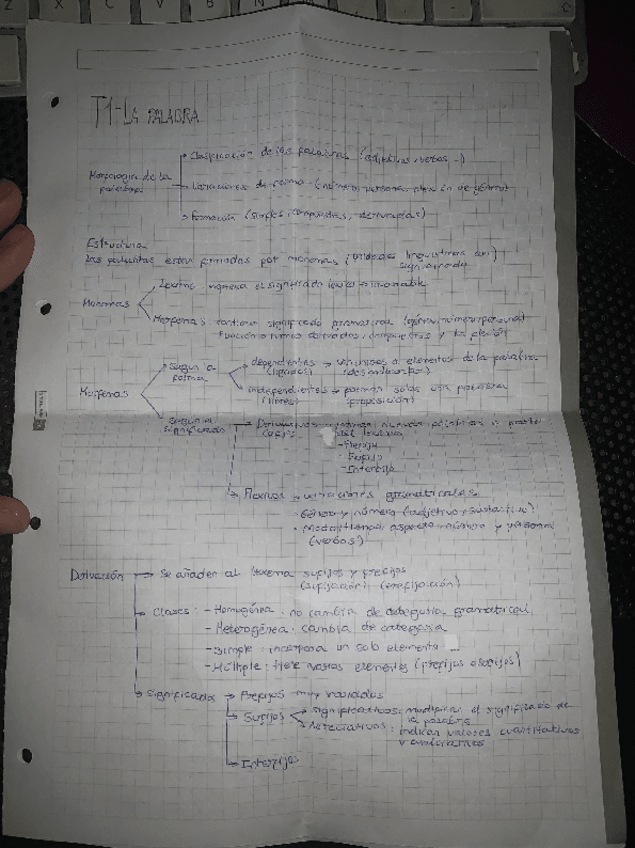 Z X C V B N M
T1-LA PALABRA
Morfología de la palabra
Clasificación de las palabras (adjetivos, verbos...)
Variaciones de forma (número, persona,
Formación (simples, compuestas, derivadas)
Estructura
Las palabras están formadas por monemas (unidades lingüísticas con significado)
Monemas
Lexema: el significado léxico invariable
Morfemas: contienen significado gramatical (género, número, persona)
Función: formar derivados, compuestos y la flexión
Morfemas
Según la forma
dependientes (ligados) → van unidos a elementos de la palabra (desinencias)
independientes (libres) → forman solos una palabra (preposición)
Según el significado
Derivativos (afijos) nuevas palabras a partir del lexema
- Prefijo
- Sufijo
- Interfijo
Flexivos → variaciones gramaticales
· Género y número (adjetivo y sustantivo)
· Modo, tiempo, aspecto, número y persona (verbos)
Derivación → Se añaden al lexema sufijos y prefijos
(sufijación) (prefijación)
Clases: - Homogénea: no cambia de categoría gramatical
- Heterogénea: cambia de categoría
- Simple: incorpora un solo elemento
- Múltiple: tiene varios elementos (prefijos o sufijos)
Significados → Prefijos muy variados
Sufijos
significativos: modifican el significado de la palabra
Apreciativos: indican valores cuantitativos y
Interfijos